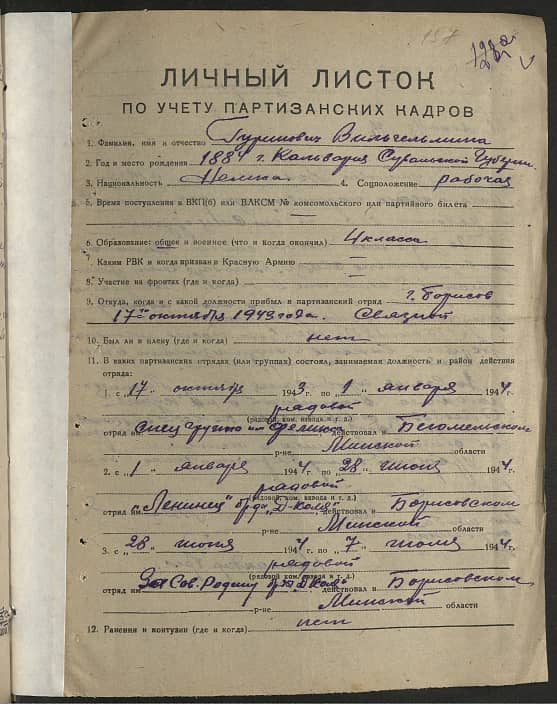 ЛИЧНЫЙ ЛИСТОК
ПО УЧЕТУ ПАРТИЗАНСКИХ КАДРОВ
1. Фамилия, имя и отчество Гуринович Вильгельмина
2. Год и место рождения 1884 г. Кальвария Сувальской Губерни.
3. Национальность Немка. 4. Соцположение рабочая
5. Время поступления в ВКП(б) или ВЛКСМ № комсомольского или партийного билета —
6. Образование: общее и военное (что и когда окончил) 4 класса
7. Каким РВК и когда призван в Красную Армию —
8. Участие на фронтах (где и когда) —
9. Откуда, когда и с какой должности прибыл в партизанский отряд г. Борисов
17го октября 1943 года. Связной
10. Был ли в плену (где и когда) нет
11. В каких партизанских отрядах (или группах) состоял, занимаемая должность и район действия
отряда:
1. с „17" октября 1943 г. по „1" января 1944 г.
рядовой
(рядовой, ком. взвода и т. д.)
отряд им. спец группа им действовал в Бегомльском
р-не Минской области
2. с „1" января 1944 г. по „28" июня 1944 г.
рядовой
(рядовой, ком. взвода и т. д.)
отряд им. „Ленинец" бр-да „Д-Коля" действовал в Борисовском
р-не Минской области
3. с „28" июня 1944 г. по „7" июля 1944 г.
рядовой
(рядовой ком. взвода и т. д.)
отряд им. За Сов. Родину бр-да „Д-Коля" действовал в Борисовском
р-не Минской области
12. Ранения и контузии (где и когда) нет